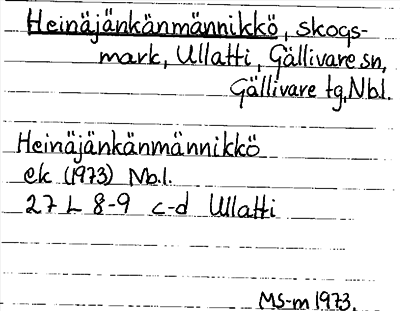 Heinäjänkänmännikkö, skogs-
mark, Ullatti, Gällivare sn,
Gällivare tg, Nbl.
Heinäjänkänmännikkö
ek (1973) Nbl.
27 L 8-9 c-d Ullatti
MS-m 1973.